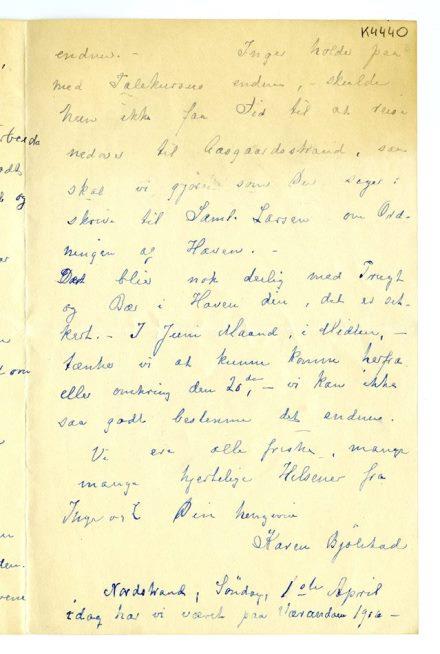 K4440
endnu. - Inger holder paa
med Talekursus endnu, - skulde
hun ikke faa Tid til at reise
nedover til Aasgaardsstrand, saa
skal vi gjøre som Du siger:
skrive til Saml. Larsen om Ord-
ningen af Haven. -
Det blir nok deilig med Frugt
og Bær i Haven din, det er sik-
kert. - I Juni Maaned, i Midten, -
tænker vi at kunne komme herfra
eller omkring den 20de, - vi kan ikke
saa godt bestemme det endnu.
Vi ere alle friske, mange
mange hjertelige Hilsener fra
Inger og Din hengivne
Karen Bjølstad
Nordstrand, Søndag, 1ste April
idag har vi været paa Verandaen 1906 -